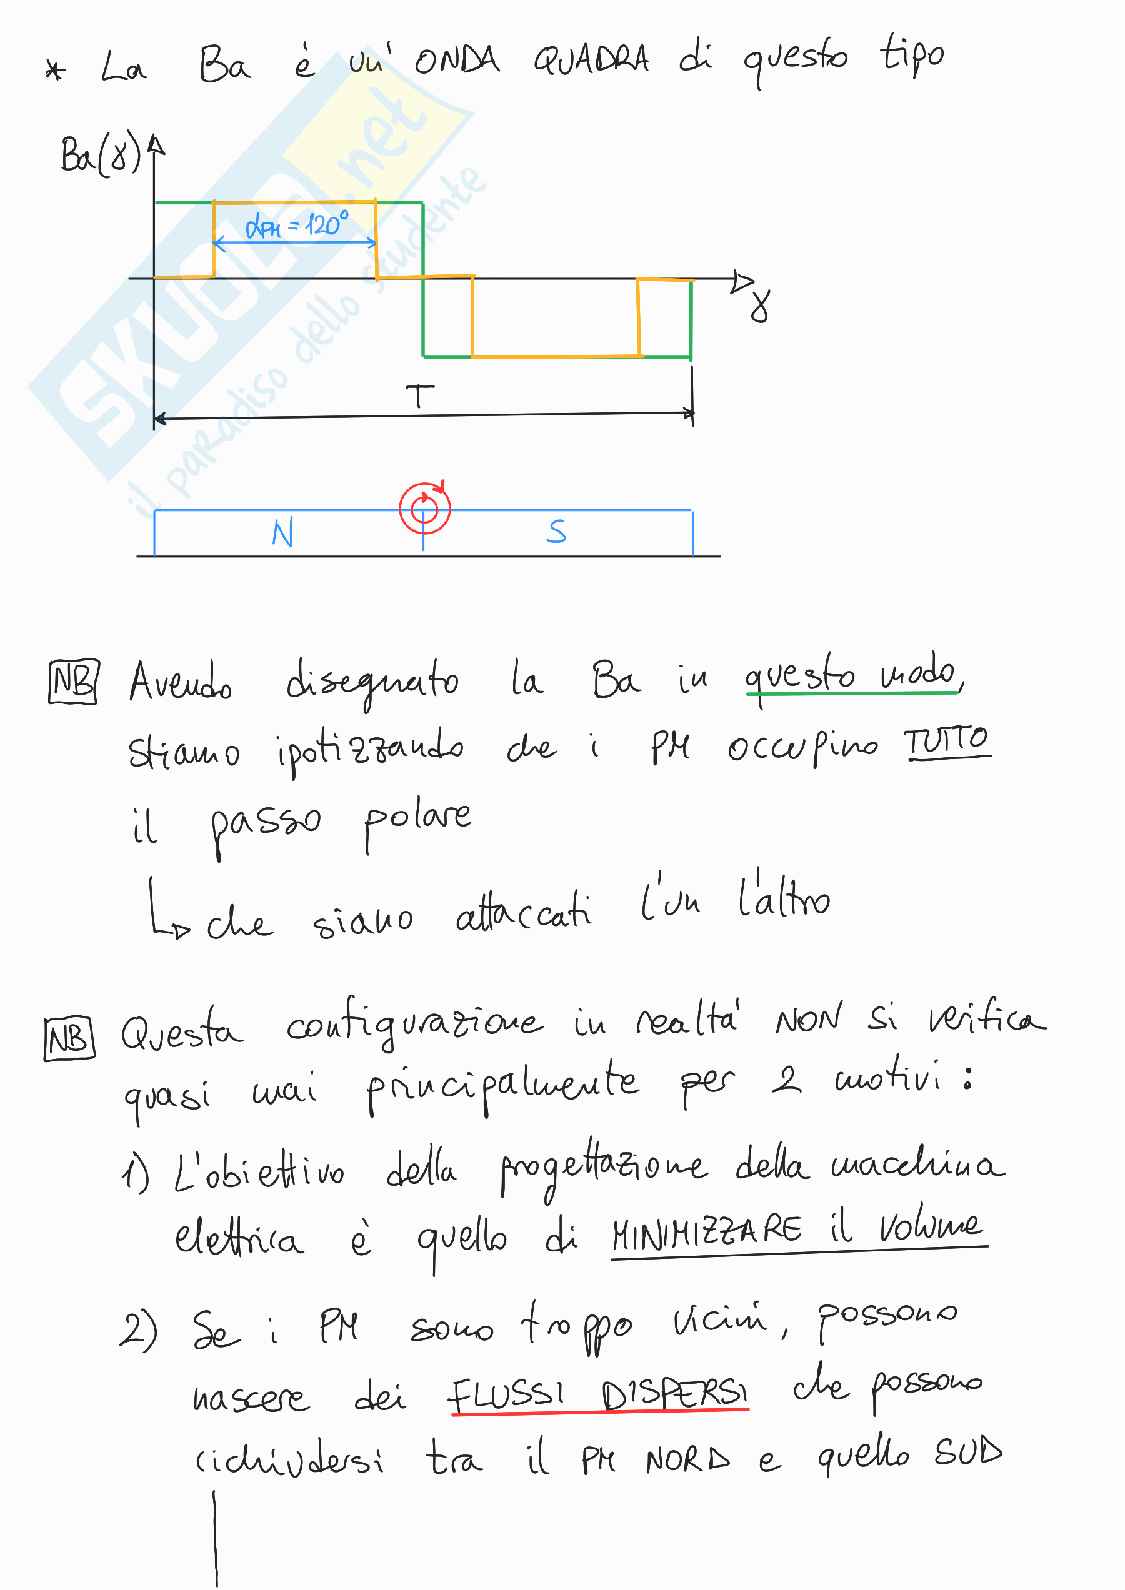 * La Ba è un' ONDA QUADRA di questo tipo
Ba(γ)
αPM = 120°
γ
T
N S
NB Avendo disegnato la Ba in questo modo,
stiamo ipotizzando che i PM occupino TUTTO
il passo polare
↳ che siano attaccati l'un l'altro
NB Questa configurazione in realta' NON si verifica
quasi mai principalmente per 2 motivi :
1) L'obiettivo della progettazione della macchina
elettrica è quello di MINIMIZZARE il volume
2) Se i PM sono troppo vicini, possono
nascere dei FLUSSI DISPERSI che possono
richiudersi tra il PM NORD e quello SUD
SKUOLA.net
il paradiso dello studente